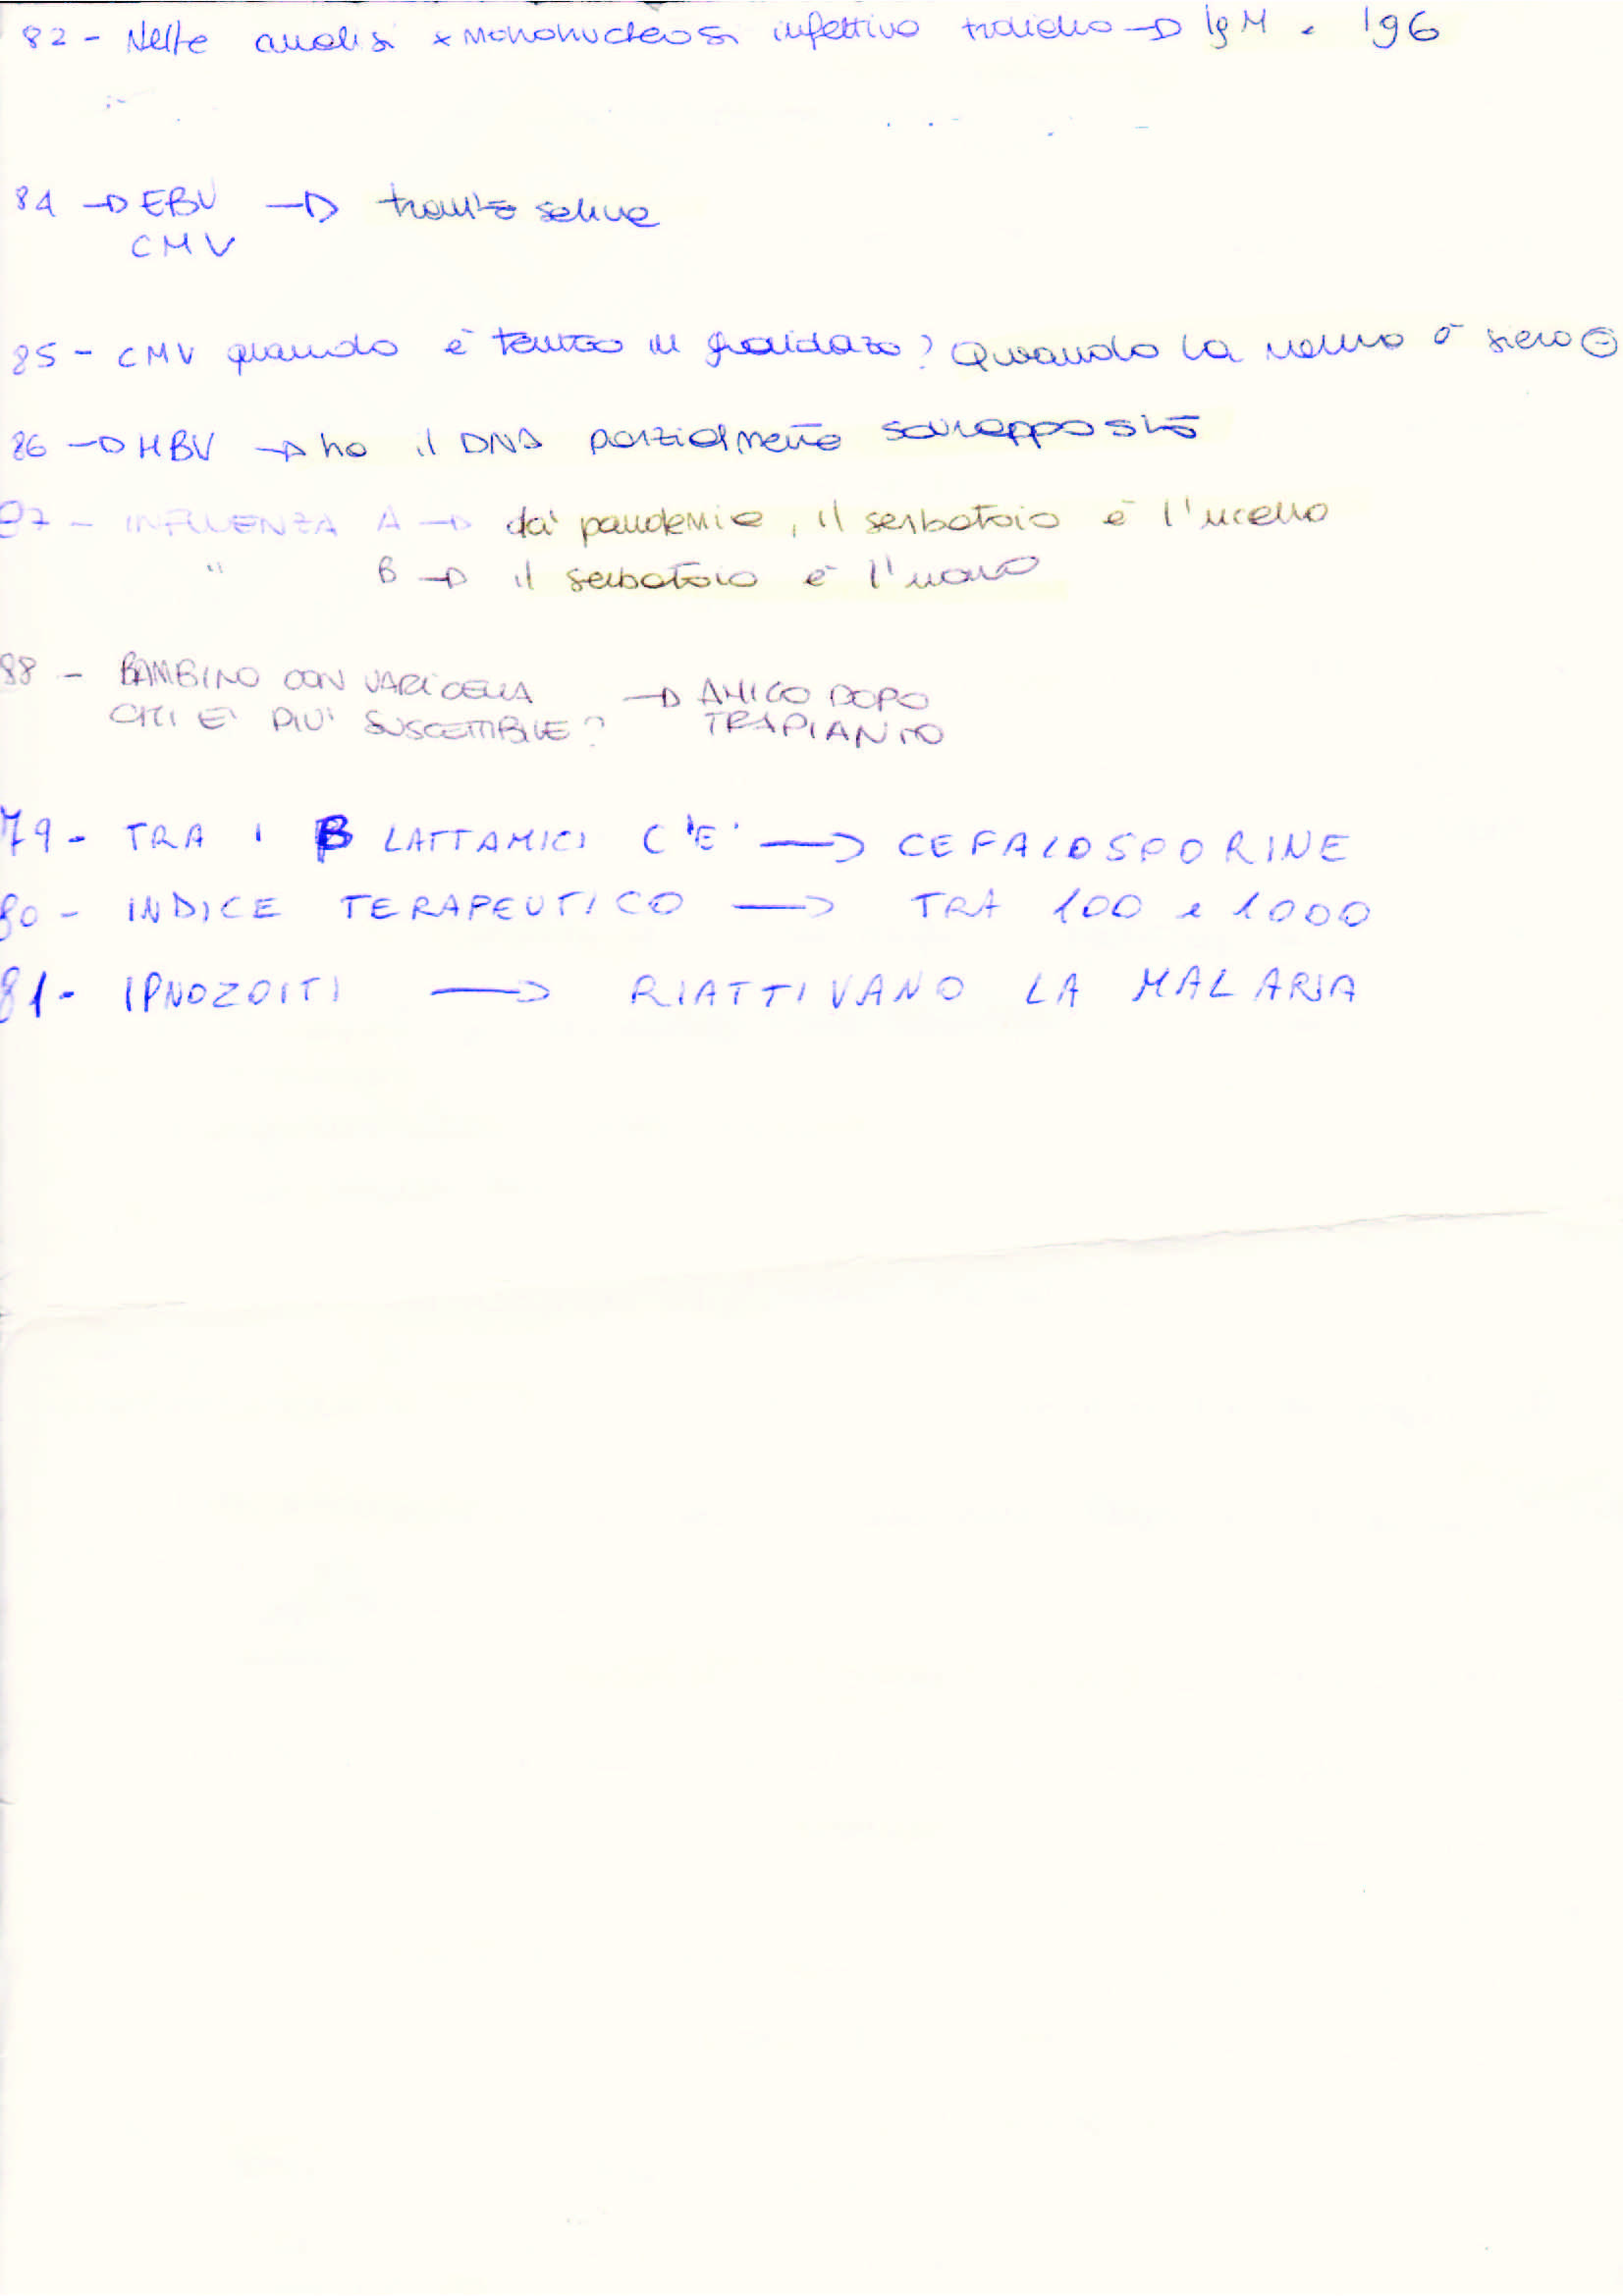 82 - Nelle analisi x mononucleosi infettiva richiedo → IgM e IgG
84 → EBV → tramite saliva
CMV
85 - CMV quando è temuto in gravidanza? Quando la mamma è siero ⊖
86 → HBV → ha il DNA parzialmente sovrapposto
87 - INFLUENZA A → da' pandemie, il serbatoio è l'uccello
" B → il serbatoio è l'uomo
88 - BAMBINO CON VARICELLA → AMICO DOPO
CHI E' PIU' SUSCETTIBILE? TRAPIANTO
79 - TRA I B LATTAMICI C'E' → CEFALOSPORINE
80 - INDICE TERAPEUTICO → TRA 100 e 1000
81 - IPNOZOITI → RIATTIVANO LA MALARIA